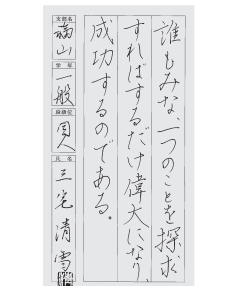 誰もみな、一つのことを探求
すればするだけ偉大になり、
成功するのである。
支部名
福山
学年
一般
段級位
同人
氏名
三宅清雪